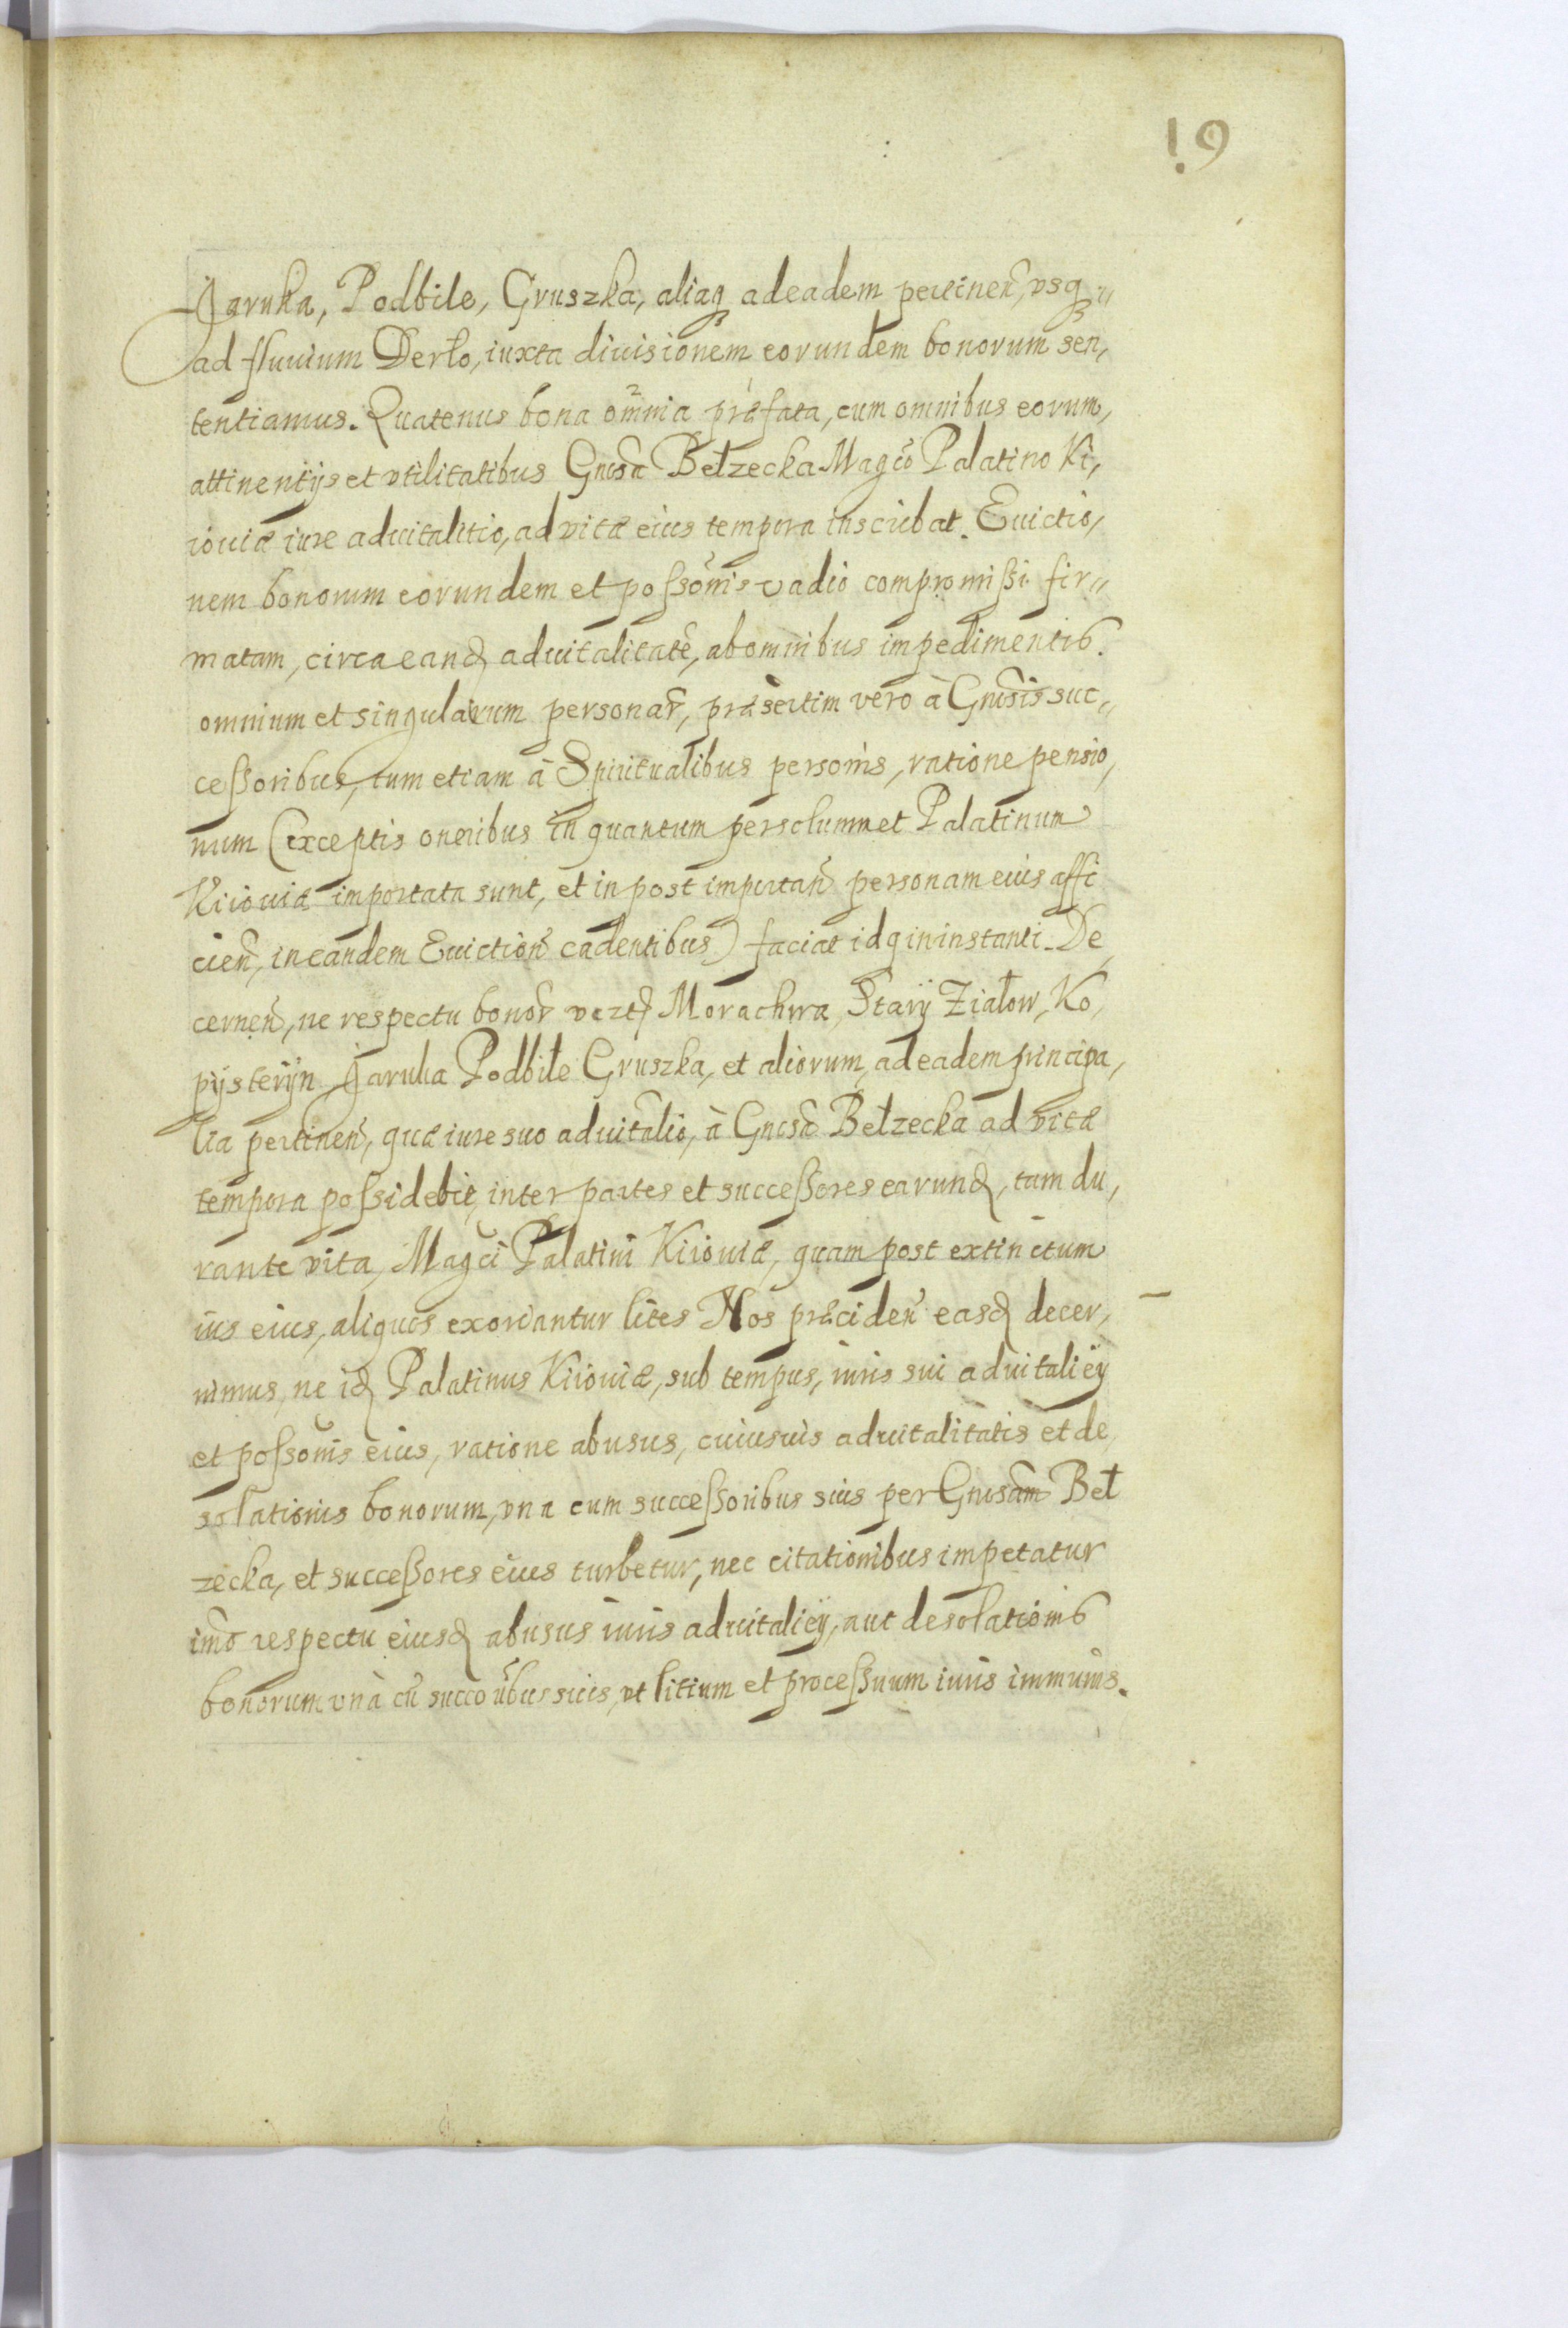 19
Jaruha, Podbile, Gruszka, aliaq adeadem pertinen, vsq
ad fluuium Derło, iuxta diuisionem eorundem bonorum sen,
tentiamus. Quatenus bona omnia præfata, cum omnibus eorum,
attinentijs et vtilitatibus Gnosa Bełzecka Magco Palatino Ki,
iouiæ iure aduitalitio, ad vitæ eius tempora inscribat. Euictio,
nem bonorum eorundem et possonis vadio compromissi fir
matam, circa eand aduitalitatē, ab omnibus impedimentis
omnium et singularum personar, præsertim vero à Gnosis suc
cessoribus, tum etiam à Spiritualibus personis, ratione pensio,
num (exceptis oneribus in quantum per solummet Palatinum
Kiiouiæ importata sunt, et in post importan personam eius affi
cien, in eandem Euiction cadentibus) faciat idq in instanti. De,
cernen, ne respectu bonor Morachwa, Staÿ Ziałow, Ko,
pijsterijn Jaruha Podbiłe Gruszka, et aliorum, ad eadem principa,
lia pertinen, quæ iure suo aduitalio, à Gnosa Bełzecka ad vitæ
tempora possidebit, inter partes et successores earund, tam du,
rante vita, Magci Palatini Kiiouiæ, quam post extinctum
ius eius, aliquos exoriantur lites Nos præciden easd decer,
nimus, ne id Palatinus Kiiouiæ, sub tempus, iuris sui aduitalicÿ
et possonis eius, ratione abusus, cuiusuis aduitalitatis et de,
solationis bonorum, vna cum successoribus suis per Gnosam Beł
zecka, et successores eius turbetur, nec citationibus impetatur
imo respectu eiusd abusus iuris aduitalicÿ, aut desolationis
bonorum vnà cū succoribus suis, vt litium et processuum iuris immunis.